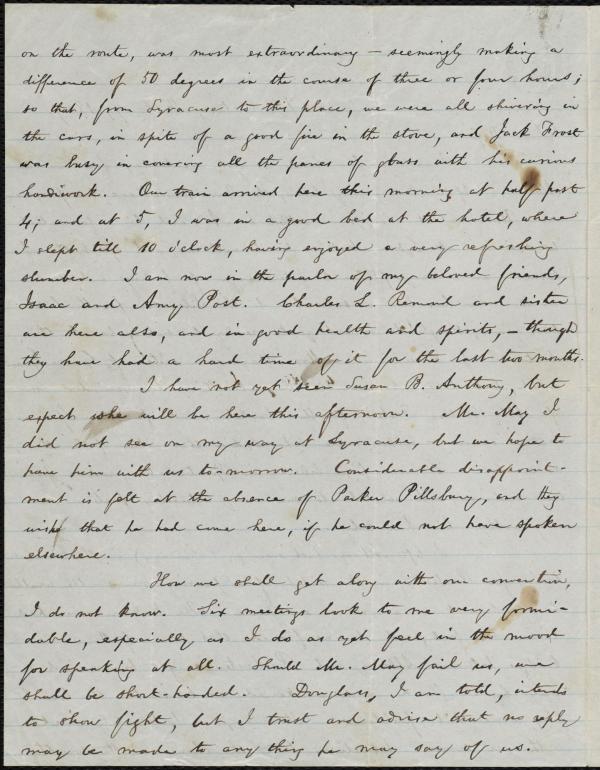 on the route, was most extraordinary — seemingly making a
difference of 50 degrees in the course of three or four hours;
so that, from Syracuse to this place, we were all shivering in
the cars, in spite of a good fire in the stove, and Jack Frost
was busy in covering all the panes of glass with his curious
handiwork. Our train arrived here this morning at half past
4; and at 5, I was in a good bed at the hotel, where
I slept till 10 o'clock, having enjoyed a very refreshing
slumber. I am now in the parlor of my beloved friends,
Isaac and Amy Post. Charles L. Remond and sister
are here also, and in good health and spirits, — though
they have had a hard time of it for the last two months.
I have not yet seen Susan B. Anthony, but
expect she will be here this afternoon. Mr. May I
did not see on my way at Syracuse, but we hope to
have him with us to-morrow. Considerable disappoint-
ment is felt at the absence of Parker Pillsbury, and they
wish that he had come here, if he could not have spoken
elsewhere.
How we shall get along with our convention,
I do not know. Six meetings look to me very formi-
dable, especially as I do as yet feel in the mood
for speaking at all. Should Mr. May fail us, we
shall be short-handed. Douglass, I am told, intends
to show fight, but I trust and advise that no reply
may be made to any thing he may say of us.